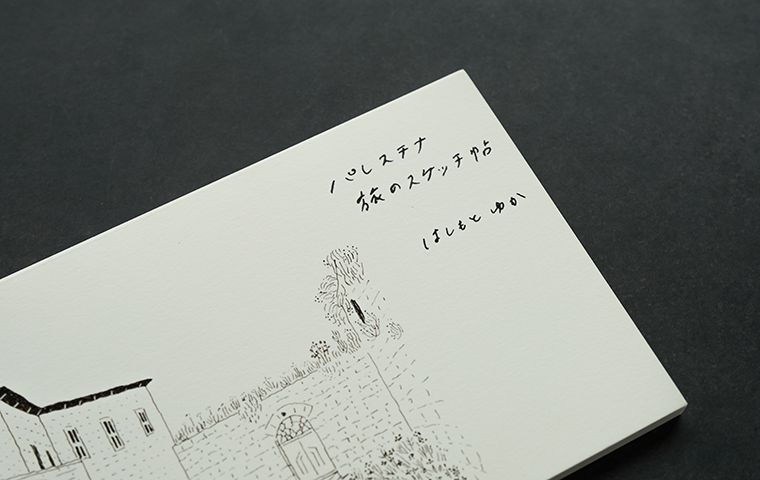 パレスチナ
旅のスケッチ帖
はしもとゆか